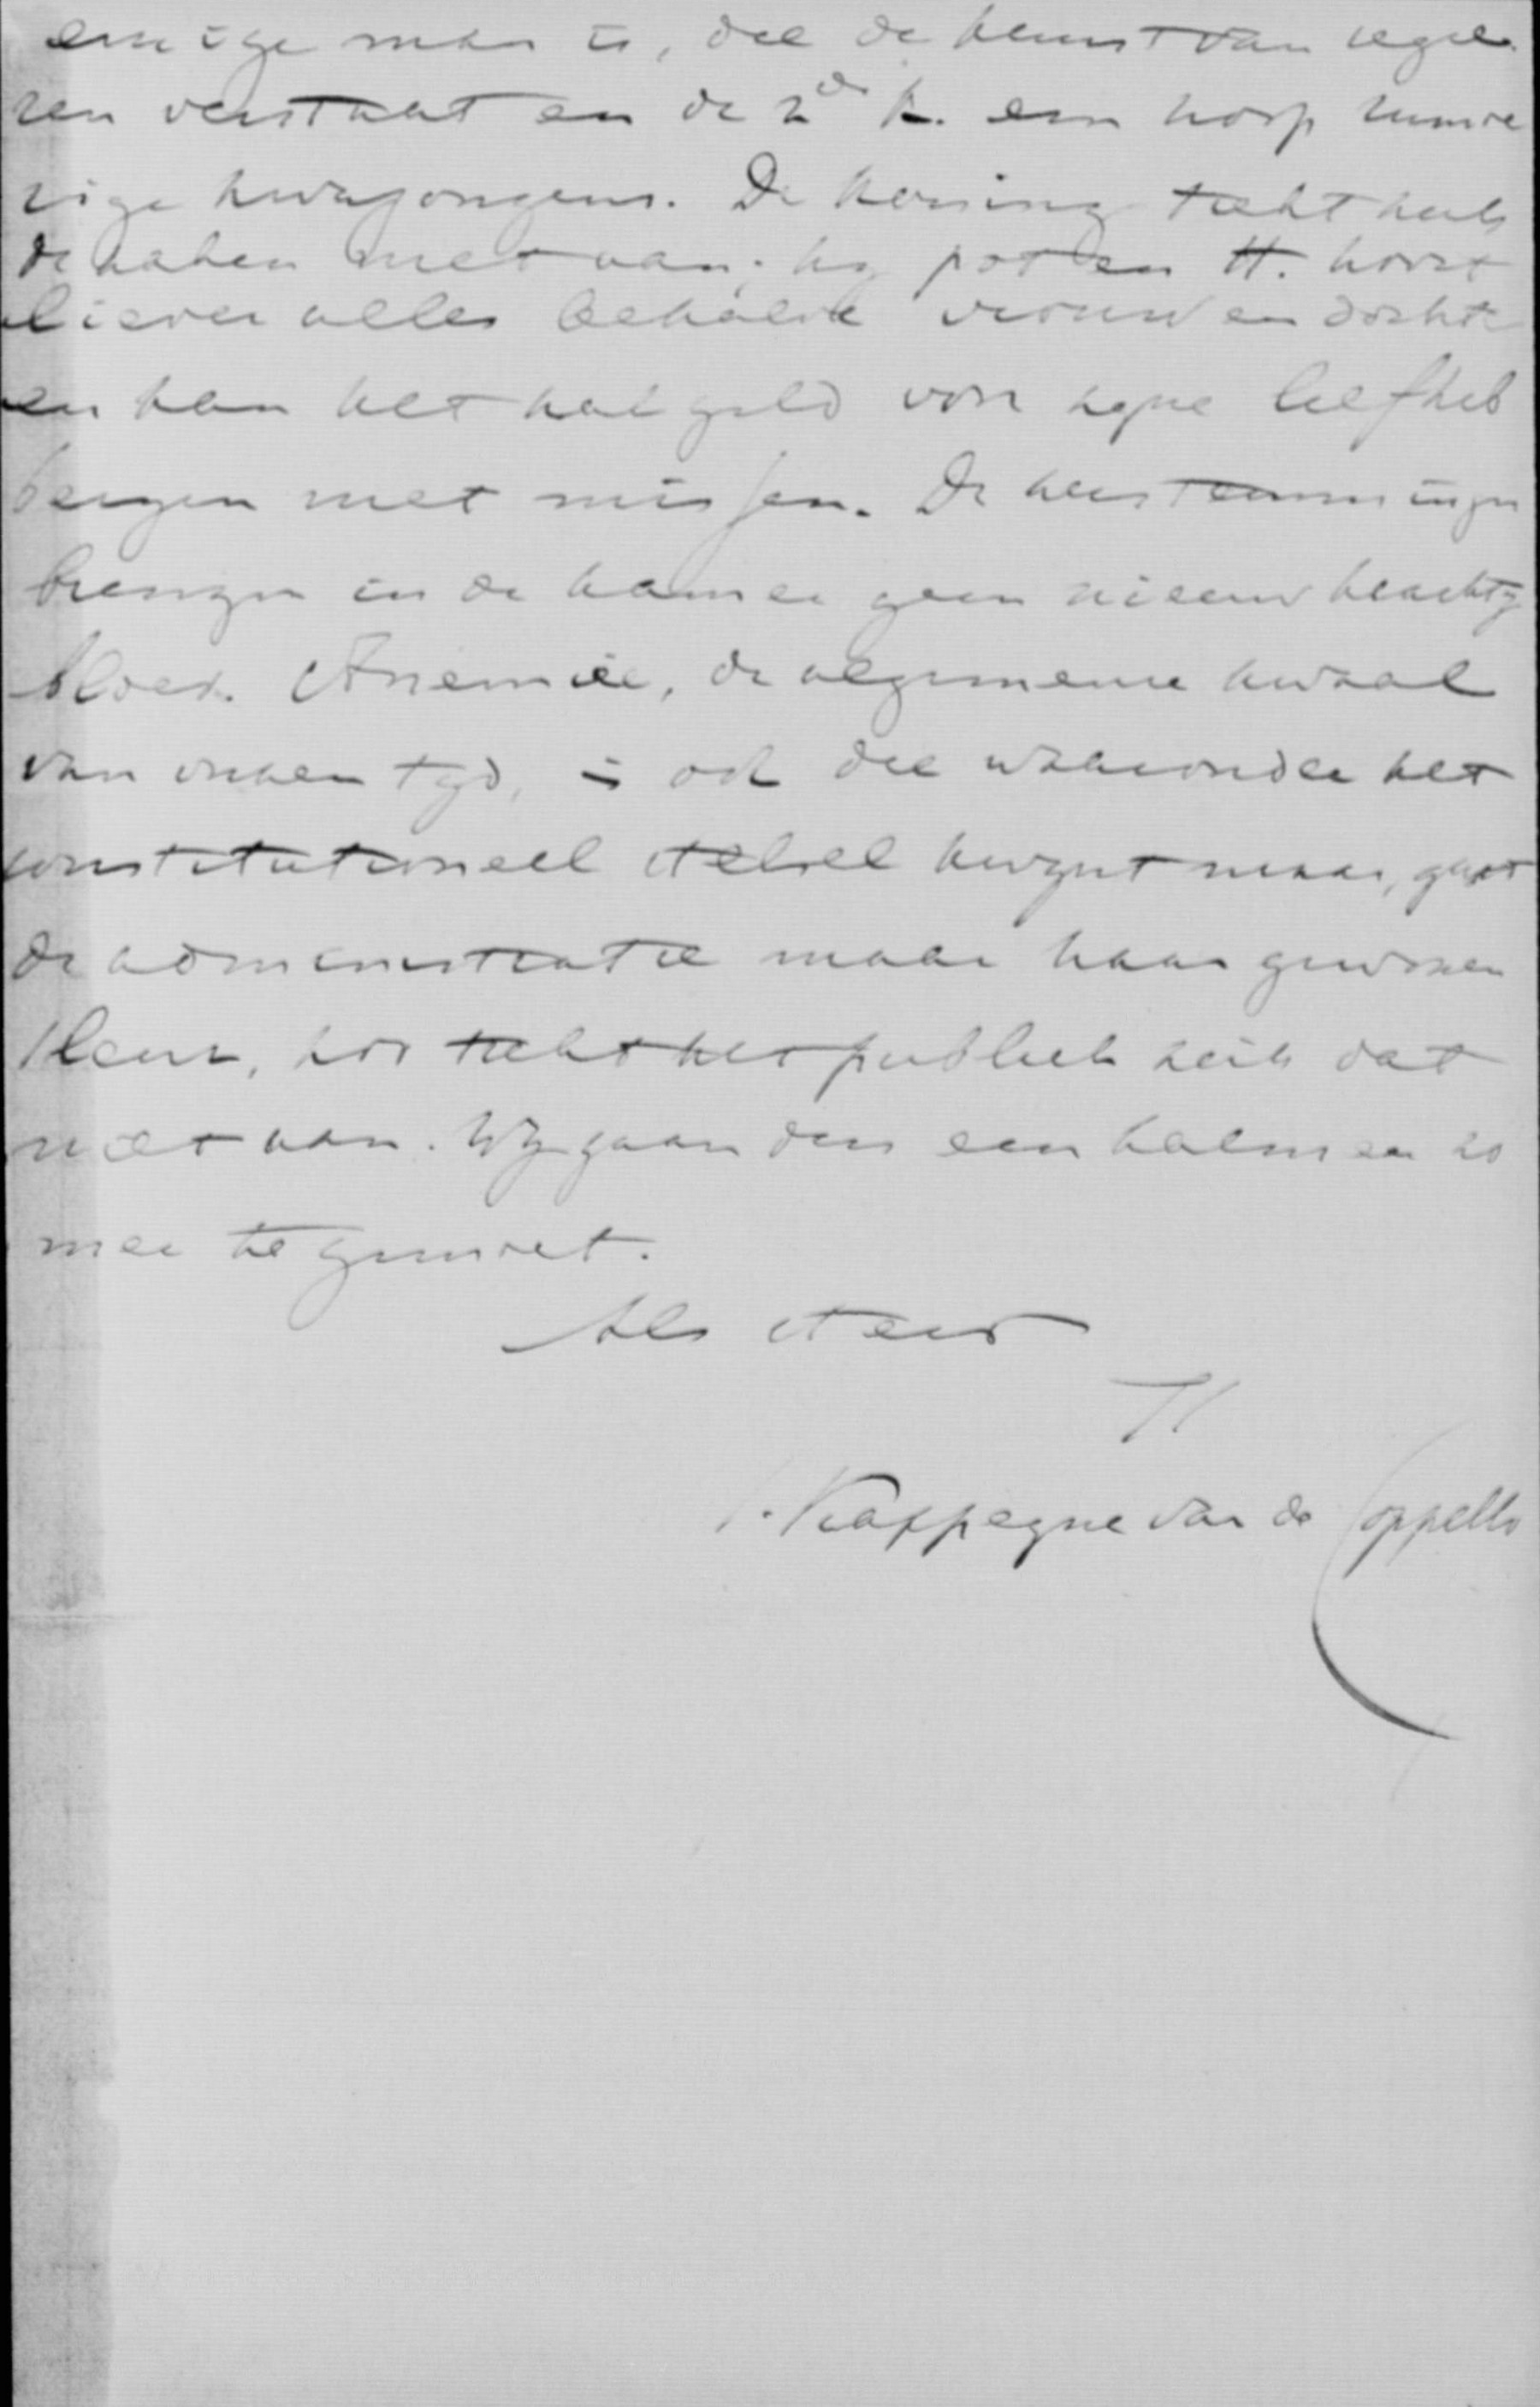 eenige man is, die de kunst van regee
ren verstaat en de 2de K. een hoop
rige kwajongens. De koning trekt zich
de zaken niet aan. hy pot en
liever alles behalve vrouw en dochter
en kan het geld voor zyne liefheb
beryen niet missen. De herstemmingen
brengen in de kamer geen nieuw krachtig
bloed. Anemie, de algemeene kwaal
van onzen tyd, is ook die waaronder het
constitutioneel stelsel kwynt maar, gaat
de administratie maar haar gewonen
sleur, zoo trekt het publiek zich dat
niet aan. Wy gaan dus een kalmen zo
mer te gemoet.
Als steeds
Tt
J. Kappeyne van de Coppello